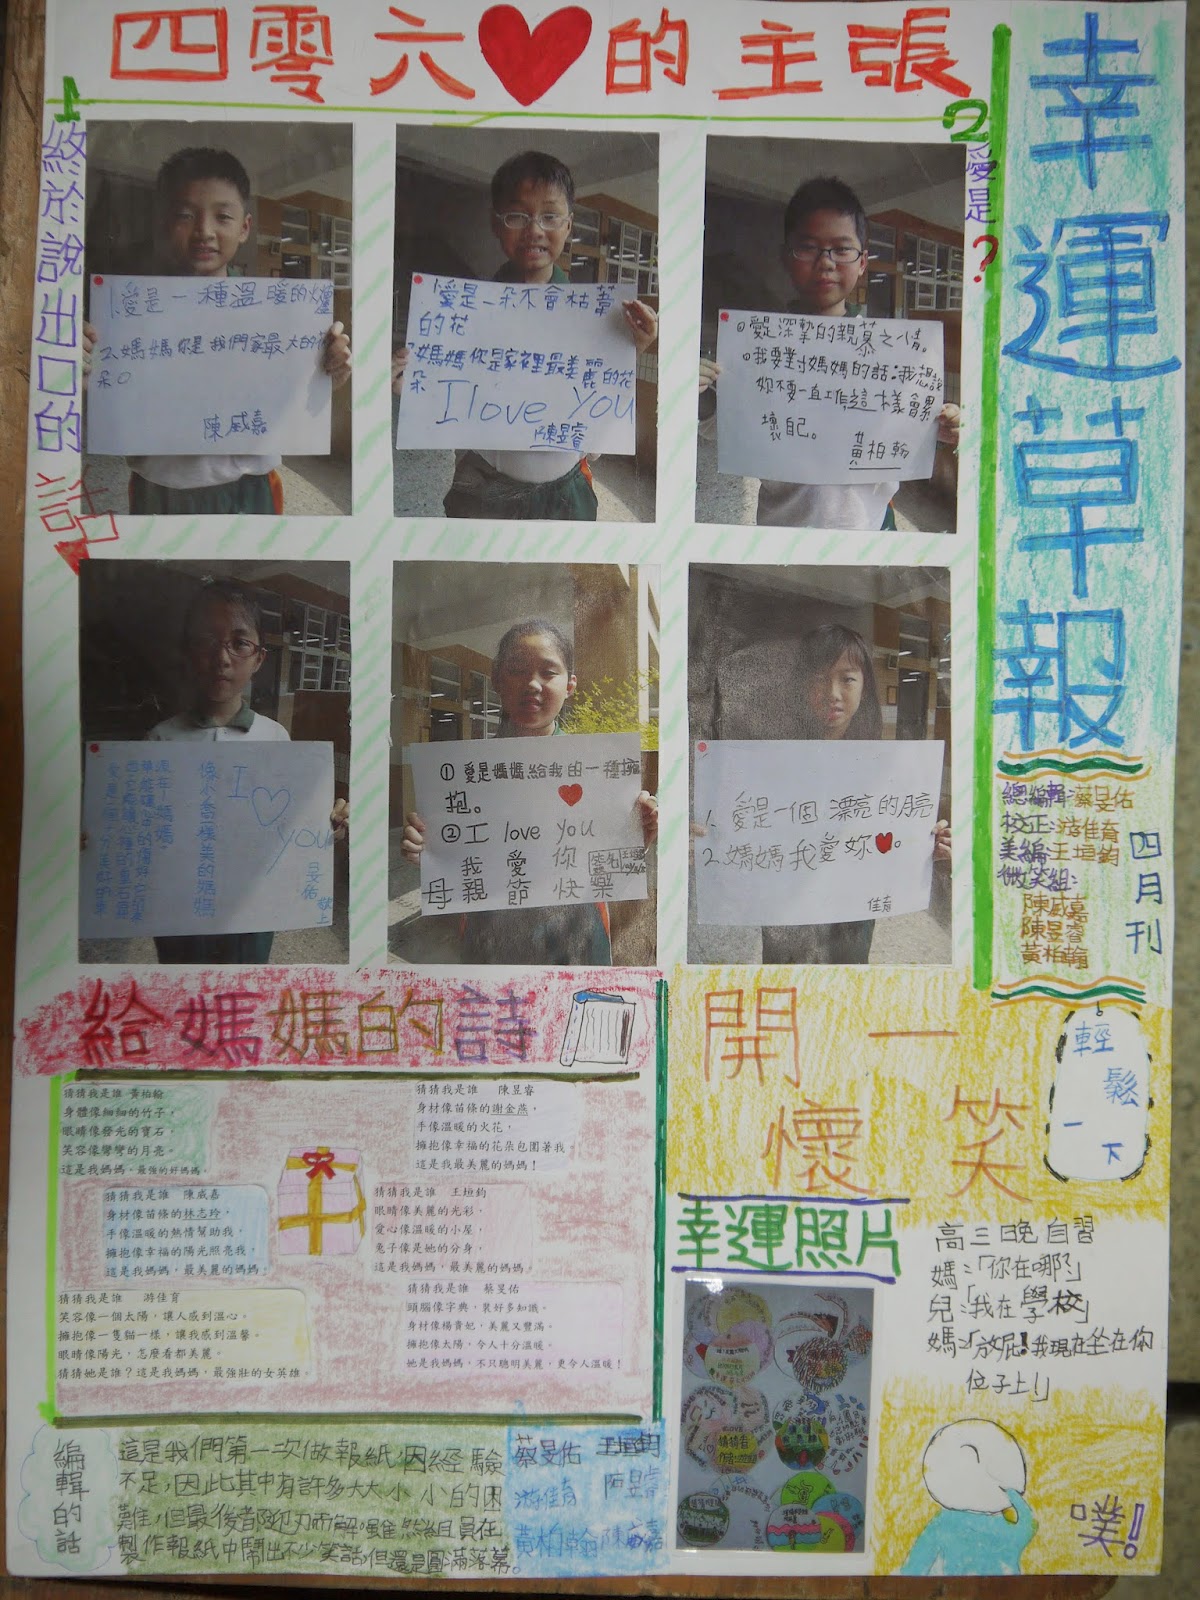 四零六❤的主張
幸運草報
四月刊
總編輯:蔡旻佑
校正:游佳育
美編:王垣鈞
微笑組:
陳威嘉
陳昱睿
黃柏翰
1
終於說出口的話
2
愛是?
1.愛是一種溫暖的爐
2.媽媽你是我們家最大的
朵。
陳威嘉
1.愛是一朵不會枯萎
的花
媽媽你是家裡最美麗的花
朵
I love You
陳昱睿
愛是深摯的親慕之情。
我要對媽媽的話:我想說
妳不要一直工作這樣會累
壞自己。
黃柏翰
I ♡ you
像小喬一樣美的媽媽
旻佑 敬上
①愛是媽媽給我的一種擁
抱。
② I love you
我愛你
母親節快樂
1.愛是一個漂亮的月亮
2.媽媽我愛妳❤。
佳育
給媽媽的詩
猜猜我是誰 黃柏翰
身體像細細的竹子,
眼睛像發光的寶石,
笑容像彎彎的月亮。
這是我媽媽。最強的好媽媽。
猜猜我是誰 陳昱睿
身材像苗條的謝金燕,
手像溫暖的火花,
擁抱像幸福的花朵包圍著我。
這是我最美麗的媽媽!
猜猜我是誰 陳威嘉
身材像苗條的林志玲,
手像溫暖的熱情幫助我,
擁抱像幸福的陽光照亮我,
這是我媽媽,最美麗的媽媽!
猜猜我是誰 王垣鈞
眼睛像美麗的光彩,
愛心像溫暖的小屋,
兔子像是她的分身,
這是我媽媽,最美麗的媽媽。
猜猜我是誰 游佳育
笑容像一個太陽,讓人感到溫心。
擁抱像一隻貓一樣,讓我感到溫馨。
眼睛像陽光,怎麼看都美麗。
猜猜她是誰?這是我媽媽,最強壯的女英雄。
猜猜我是誰 蔡旻佑
頭腦像字典,裝好多知識。
身材像楊貴妃,美麗又豐滿。
擁抱像太陽,令人十分溫暖。
她是我媽媽,不只聰明美麗,更令人溫暖!
開懷一笑
輕鬆一下
幸運照片
高三晚自習
媽:「你在哪?」
兒:「我在學校」
媽:「放屁!我現在坐在你
位子上!」
噗!
編輯的話
這是我們第一次做報紙,因經驗
不足,因此其中有許多大大小小的困
難,但最後都迎刃而解。雖然組員在
製作報紙中鬧出不少笑話,但還是圓滿落幕。
蔡旻佑 王垣鈞
游佳育 陳昱睿
黃柏翰 陳威嘉